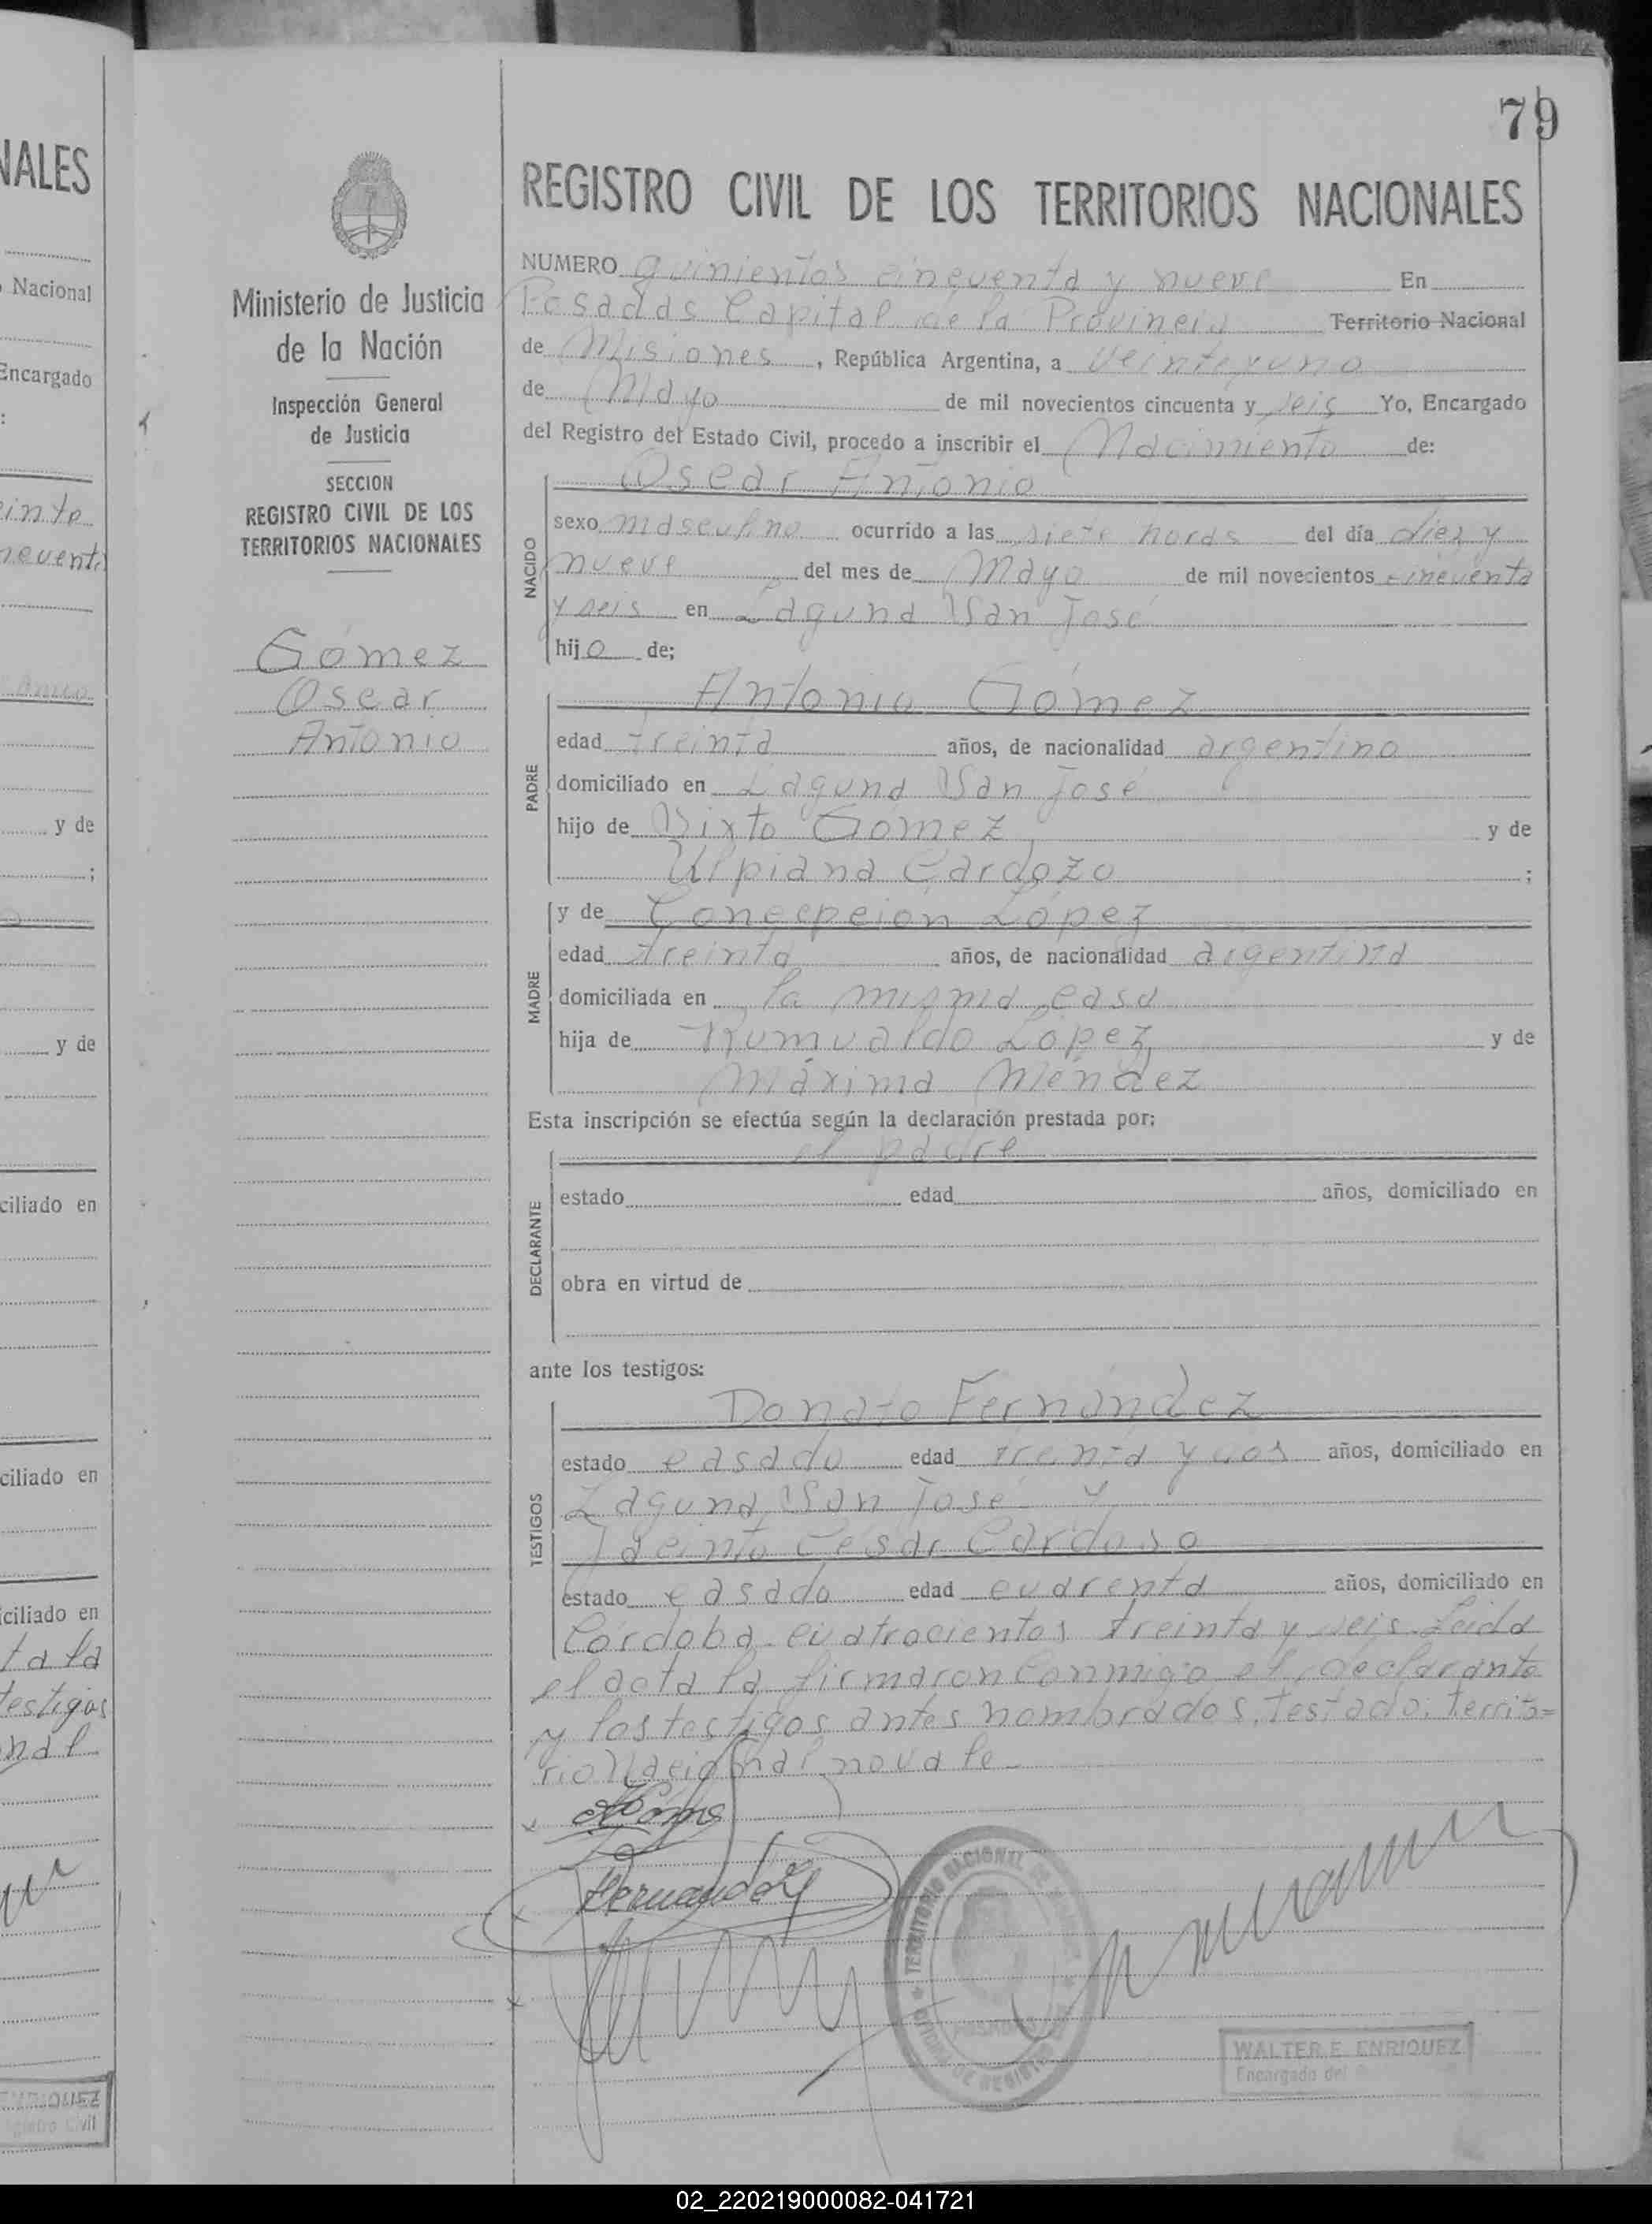 79
NALES
Nacional
Encargado
:
einte
y de
;
y de
ciliado en
ciliado en
ciliado en
ta la
testigos
nal
Ministerio de Justicia
de la Nación
Inspección General
de Justicia
SECCION
REGISTRO CIVIL DE LOS
TERRITORIOS NACIONALES
Gómez
Oscar
Antonio
REGISTRO CIVIL DE LOS TERRITORIOS NACIONALES
NUMERO quinientos cincuenta y nueve En
Posadas Capital de la Provincia Territorio Nacional
de Misiones, República Argentina, a veinteyuno
de Mayo de mil novecientos cincuenta y seis Yo, Encargado
del Registro del Estado Civil, procedo a inscribir el Nacimiento de:
NACIDO
Oscar Antonio
sexo masculino ocurrido a las siete horas del día diez y
nueve del mes de Mayo de mil novecientos cincuenta
y seis en Laguna San José
hijo de;
PADRE
Antonio Gómez
edad treinta años, de nacionalidad argentino
domiciliado en Laguna San José
hijo de Sixto Gómez y de
Ulpiana Cardozo ;
MADRE
y de Concepción López
edad treinta años, de nacionalidad argentina
domiciliada en la misma casa
hija de Rumualdo López y de
Máxima Méndez
Esta inscripción se efectúa según la declaración prestada por:
DECLARANTE
el padre
estado edad años, domiciliado en
obra en virtud de
ante los testigos:
TESTIGOS
Donato Fernández
estado casado edad treinta y dos años, domiciliado en
Laguna San José y
Jacinto César Cardoso
estado casado edad cuarenta años, domiciliado en
Córdoba cuatrocientos treinta y seis. Leida
el acta la firmaron conmigo el declarante
y los testigos antes nombrados. Testado: Territo=
rio Nacional no vale
Fernandez
TERRITORIO NACIONAL DE
WALTER E. ENRIQUEZ
Encargado del
02_220219000082-041721